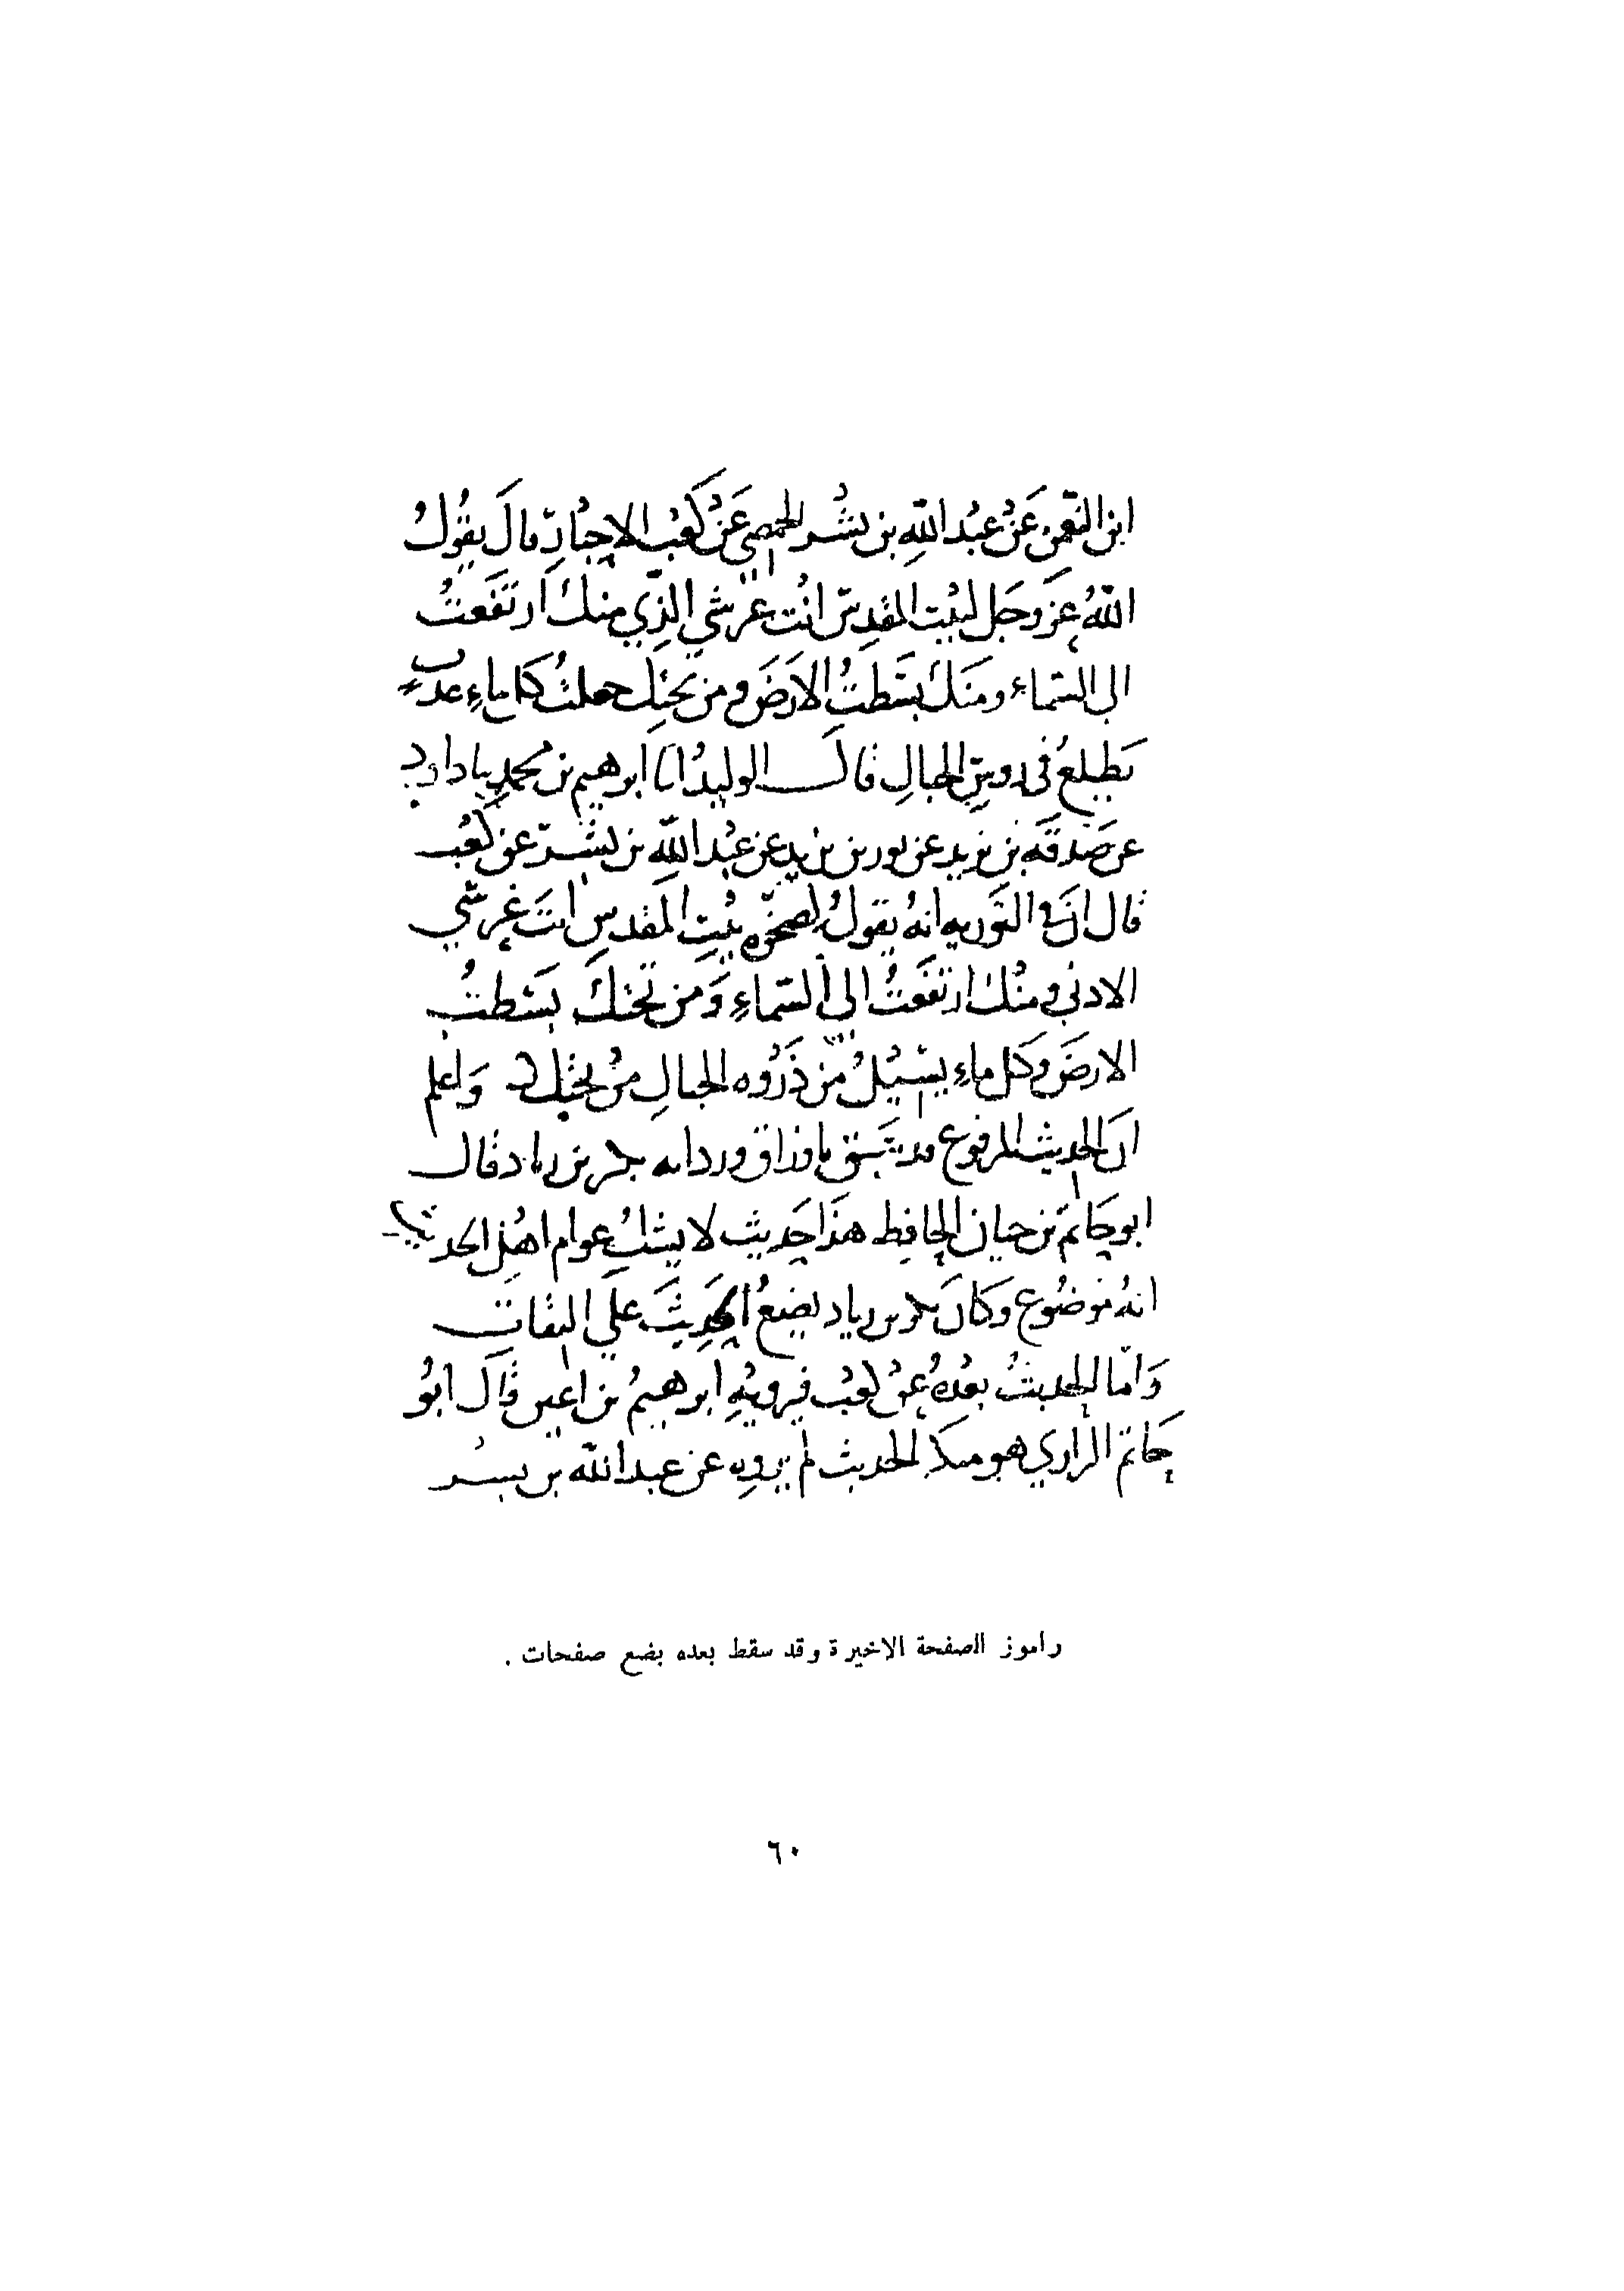 ابن النعمن عَنْ عبْد اللهِ بن بُسْر الحمصي عَنْ كَعْب الاحبَارِ قالَ يقُولُ
اللهُ عزوجَل لبيْت المقدسِ انْت عَرشي الذِي منك ارتفَعتُ
الى السّماء ومنكَ بسَطتُ الارَضَ ومن تحتِك جعلتُ كل ماءٍ عذبٍ
يَطلعُ في روسِ الجبالِ قال الوليدُ انا ابرهيم بن محمدٍ بنا داود
عن صَدقَة بن يزيد عن ثور بن يزيد عن عبْد اللهِ بن بُسْر عن كعْب
قال انَّ في التَورىه انهُ يقولُ لصخره بيْتِ المقدسِ انتَ عَرشي
الادنى ومنْك ارتفَعتُ الى السّماءِ وَمن تحتكَ بسَطتُ
الارضَ وكل ماءٍ يسيْلُ منْ ذَرْوه الجبالِ منْ تحتِك وَاعلم
انَ الحديث المرفوع قد سَبق باوراق ورداىه بكر بن زياد فقال
ابو حَاتم بن حبان الحافظ هذَا حَديث لا يشكُ عوام اهْل الحديث
انهُ موضُوع وكَانَ بكر بن زياد يضعُ الحَديثَ علي الثقات
وَامّا الحديثُ بعْدهُ عنْ كعْب فيرويْهِ ابرهيمُ بن اعين قَال ابوُ
حَاتم الرازي هو منكر الحديث لم يروِه عن عبد الله بن بسْر
راموز الصفحة الاخيرة وقد سقط بعده بضع صفحات .
٦٠